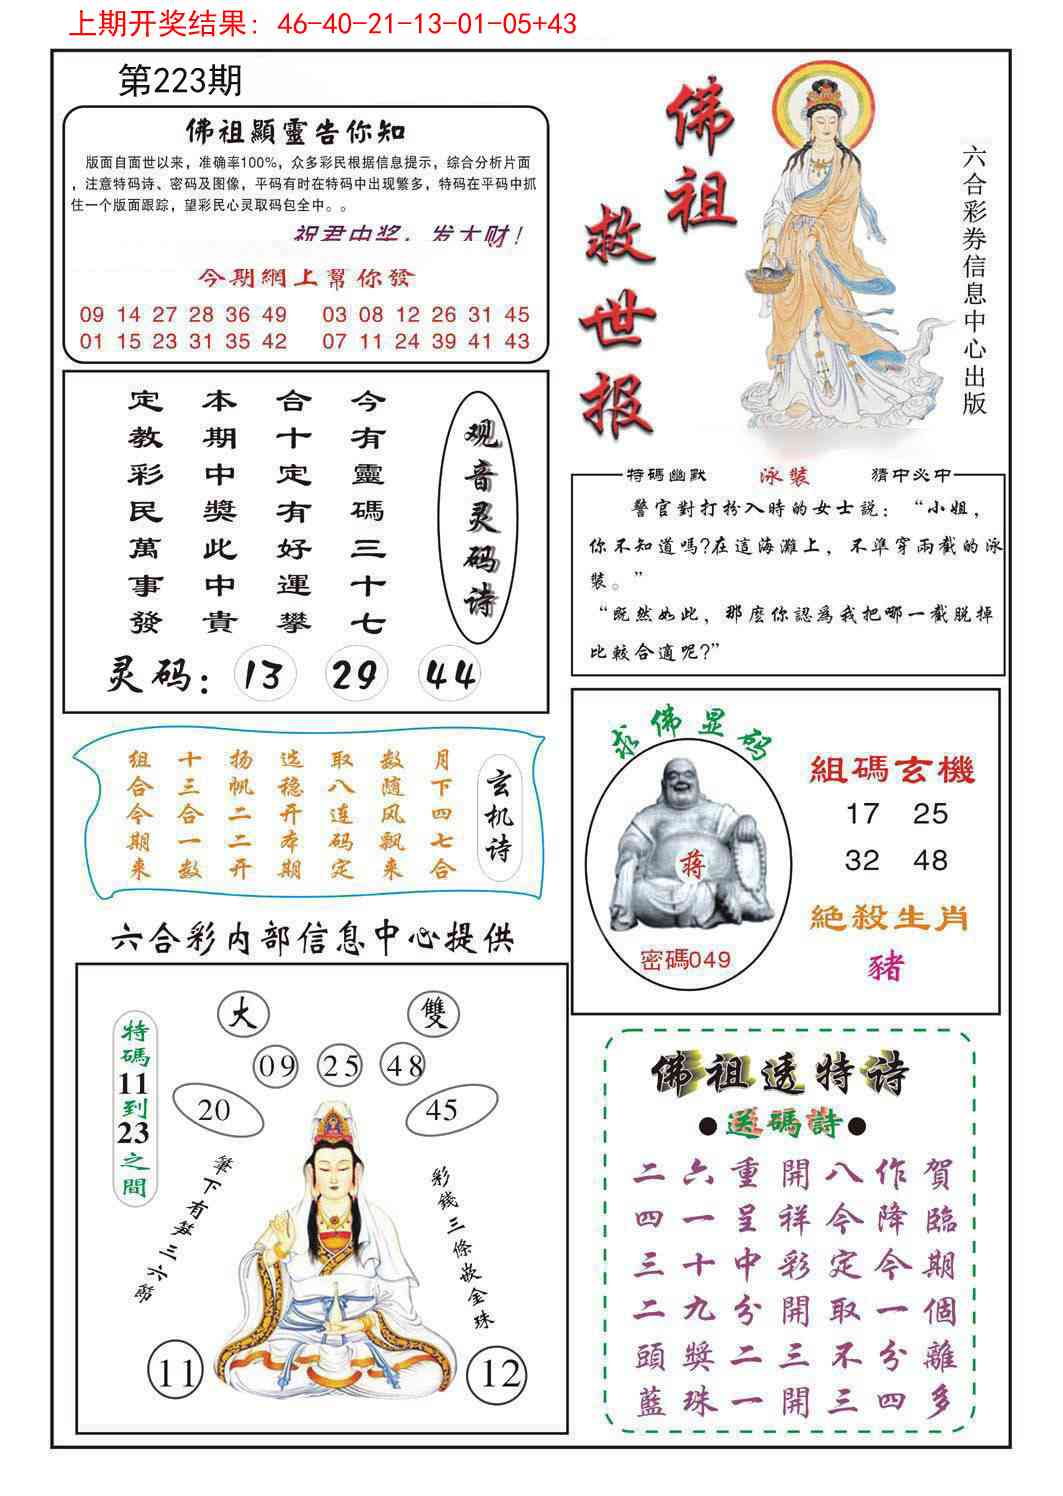 上期开奖结果：46-40-21-13-01-05+43
第223期
佛祖顯靈告你知
版面自面世以来，准确率100%，众多彩民根据信息提示，综合分析片面
，注意特码诗、密码及图像，平码有时在特码中出现繁多，特码在平码中抓
住一个版面跟踪，望彩民心灵取码包全中。。
祝君中奖，发大财！
今期網上幫你發
09 14 27 28 36 49 03 08 12 26 31 45
01 15 23 31 35 42 07 11 24 39 41 43
佛祖
救世报
六合彩券信息中心出版
观音灵码诗
今有靈碼三十七
合十定有好運攀
本期中獎此中貴
定教彩民萬事發
灵码：13 29 44
特碼幽默 泳裝 猜中必中
警官對打扮入時的女士説：“小姐，
你不知道嗎?在這海灘上，不準穿兩截的泳
裝。”
“既然如此，那麽你認爲我把哪一截脱掉
比較合適呢?”
玄机诗
月下四七合
数随风飘来
取八连码定
选稳开本期
扬帆二二开
十三合一数
组合今期来
求佛显码
蒋
密碼049
組碼玄機
17 25
32 48
絶殺生肖
豬
六合彩内部信息中心提供
特碼11到23之間
大 雙
09 25 48
20 45
筆下有
三六節
彩錢三條嵌金珠
11 12
佛祖透特诗
●送碼詩●
賀臨期個離多
作降今一分四
八今定取不三
開祥彩開三開
重呈中分二一
六一十九獎珠
二四三二頭藍